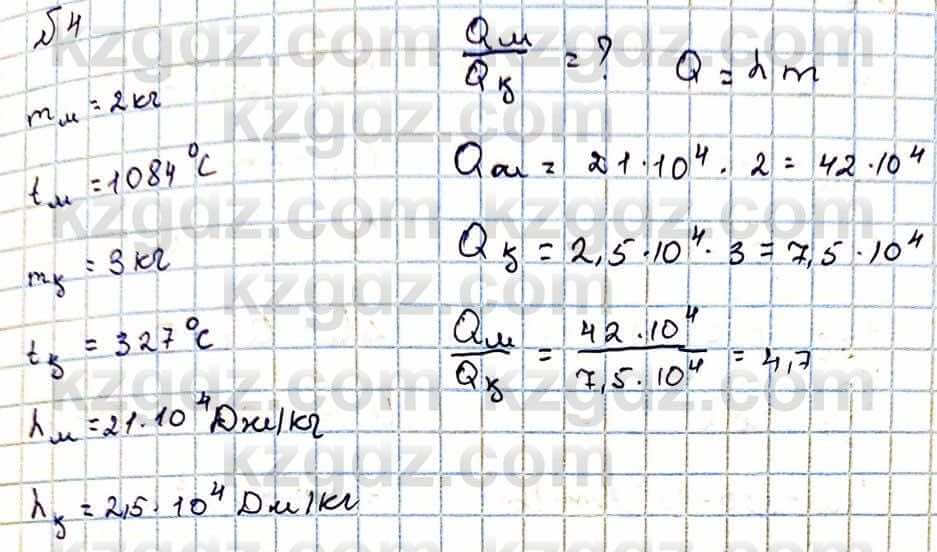 №4
mм = 2 кг
tм = 1084°C
mқ = 3 кг
tқ = 327°C
λм = 21·10⁴ Дж/кг
λқ = 2,5·10⁴ Дж/кг
Qм/Qқ = ? Q = λm
Qм = 21·10⁴·2 = 42·10⁴
Qқ = 2,5·10⁴·3 = 7,5·10⁴
Qм/Qқ = 42·10⁴/7,5·10⁴ = 4,7
kzgdz.com
kzgdz.com
kzgdz.com
kzgdz.com
kzgdz.com
kzgdz.com